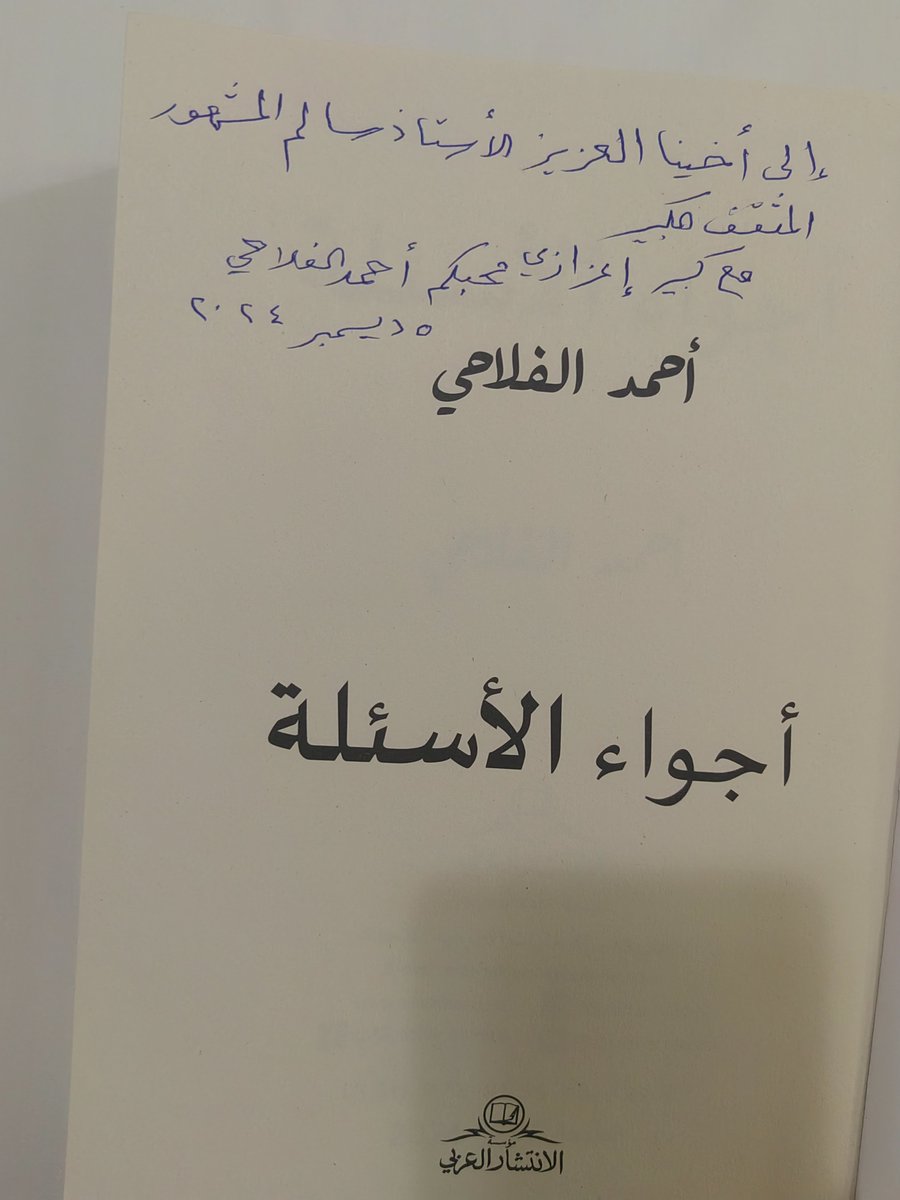 إلى أخينا العزيز الأستاذ سالم المشهور
المثقف الكبير
مع كبير إعزازي محبكم أحمد الفلاحي
٥ ديسمبر ٢٠٢٤
أحمد الفلاحي
أجواء الأسئلة
مؤسسة
الانتشار العربي